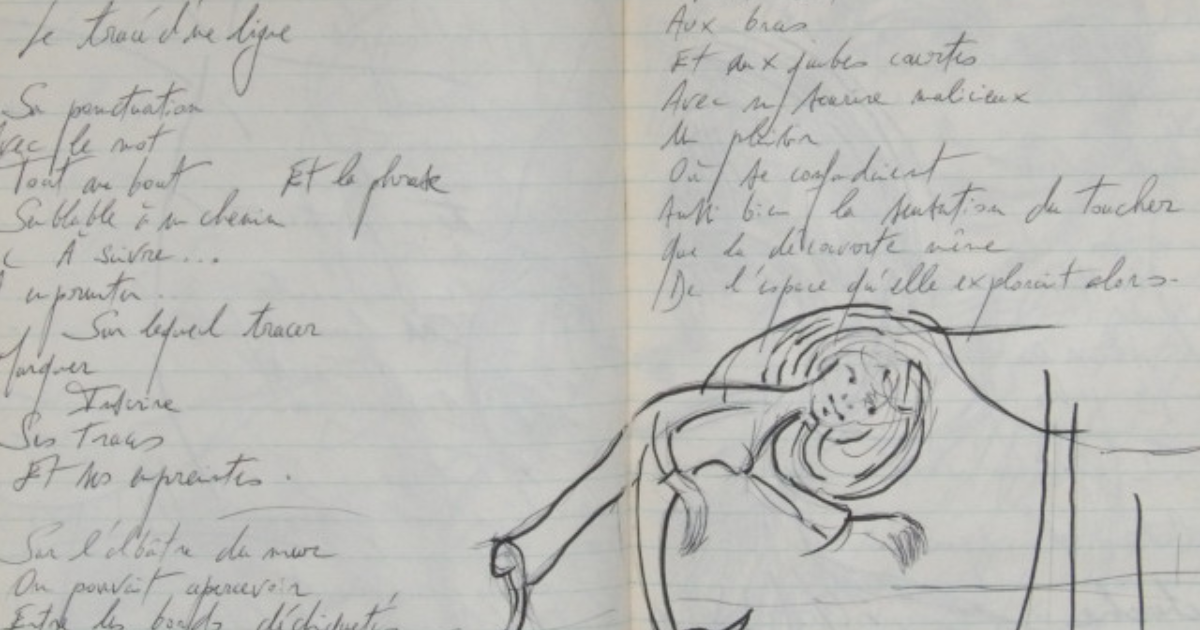 Le tracé d'une ligne
Sa ponctuation
Avec le mot
Tout au bout Et la phrase
Semblable à un chemin
À suivre...
emprunter.
Sur lequel tracer
Marquer
Inscrire
Ses traces
Et ses empreintes.
Sur l'albâtre du mur
On pouvait apercevoir
Entre les bords déchiquetés
Aux bras
Et aux jambes courtes
Avec un sourire malicieux
Un
Où se confondaient
Aussi bien la sensation du toucher
Que la découverte même
De l'espace qu'elle explorait alors.